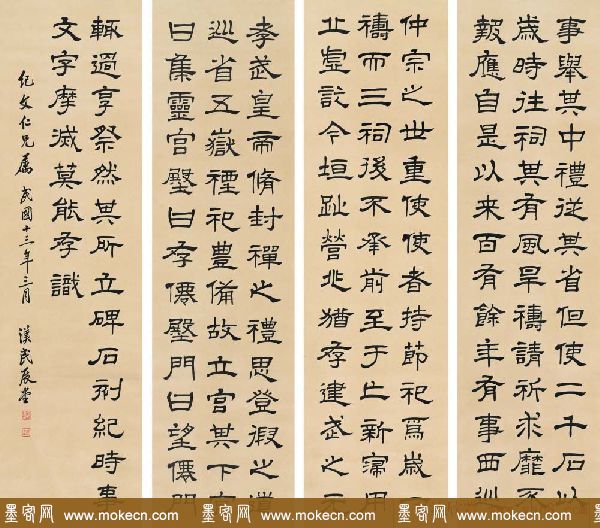 事舉其中禮從其省但使二千石以
歲時往祠其有風旱禱請祈求靡不
報應自是以来百有餘年有事西巡
仲宗之世重使使者持節祀焉歲一
禱而三祠後不承前至于亡新寖用
丘虛訖今垣趾營兆猶存建武之元
孝武皇帝脩封禪之禮思登徦之道
巡省五嶽禋祀豐備故立宮其下宮
曰集靈宮殿曰存僊殿門曰望僊門
輒過享祭然其所立碑石刻紀時事
文字摩滅莫能存識
紀文仁兄屬 民國十三年三月 漢民展堂
墨客网 www.mokecn.com
墨客网 www.mokecn.com
墨客网 www.mokecn.com
墨客网 www.mokecn.com